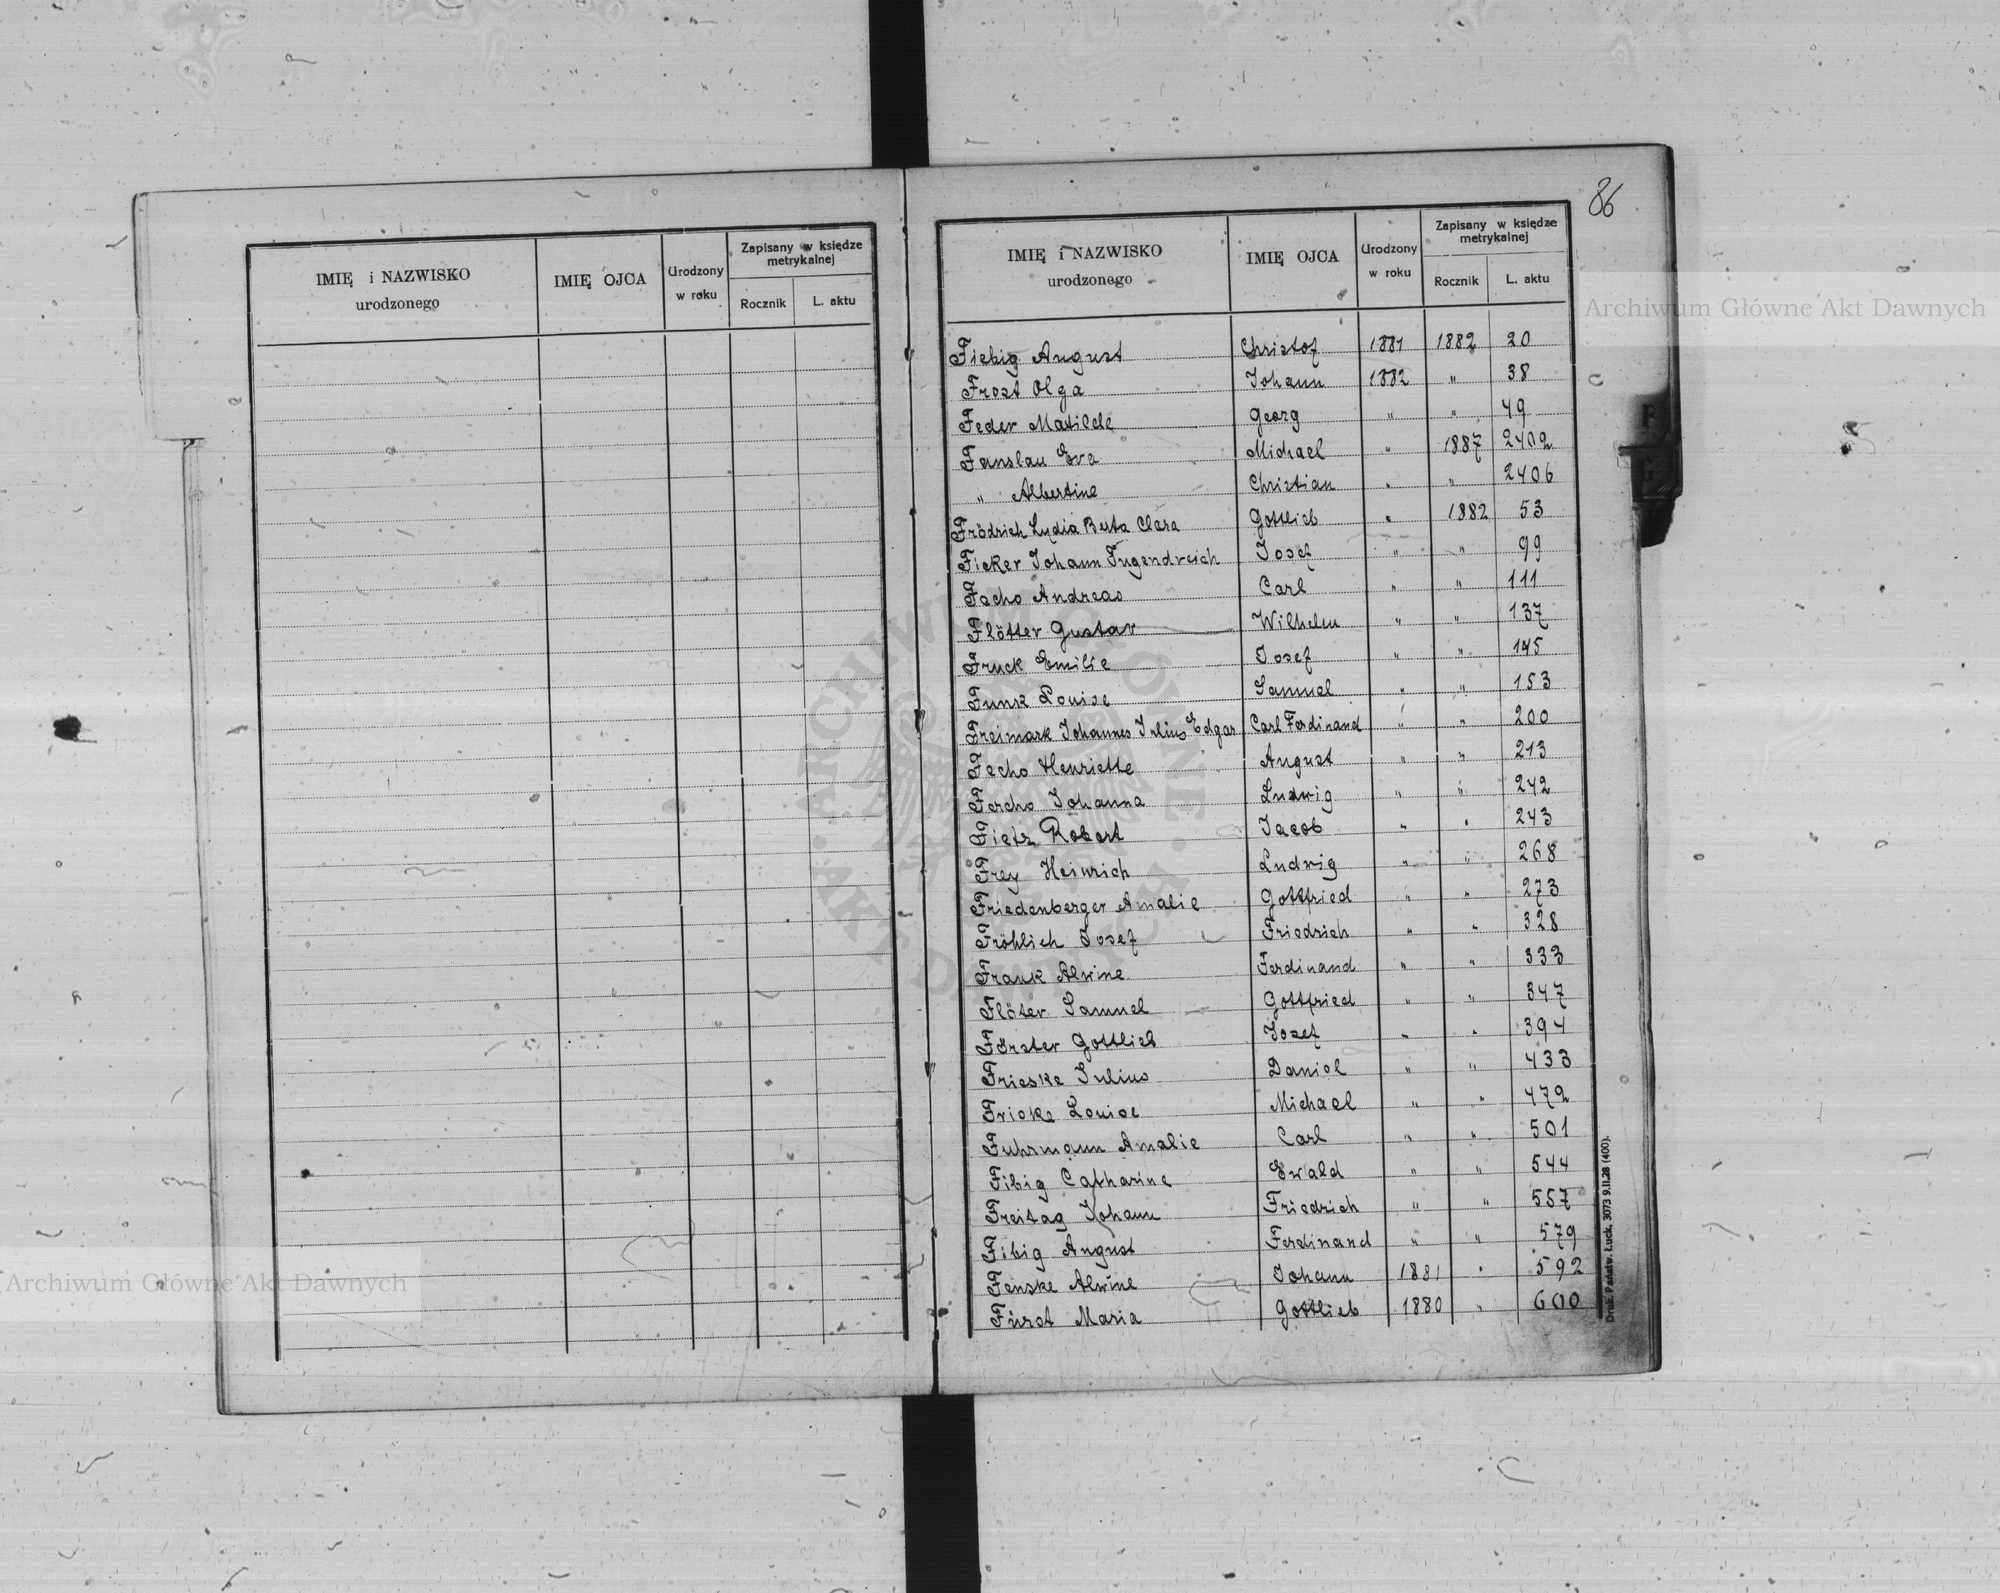 86
IMIĘ i NAZWISKO urodzonego IMIĘ OJCA Urodzony w roku Zapisany w księdze metrykalnej Rocznik L. aktu
IMIĘ i NAZWISKO urodzonego IMIĘ OJCA Urodzony w roku Zapisany w księdze metrykalnej Rocznik L. aktu
Archiwum Główne Akt Dawnych
Fiebig August Christof 1881 1882 20
Frost Olga Johann 1882 " 38
Feder Matilde Georg " " 49
Fenslau Eva Michael " 1887 2402
" Albertine Christian " " 2406
Frödrich Lydia Berta Clara Gottlieb " 1882 53
Ficker Johann Tugendreich Josef " " 99
Fecho Andreas Carl " " 111
Flötter Gustav Wilhelm " " 137
Fruck Emilie Josef " " 145
Funk Louise Samuel " " 153
Freimark Johannes Julius Edgar Carl Ferdinand " " 200
Fecho Henriette August " " 213
Fercho Johanna Ludwig " " 242
Fietz Robert Jacob " " 243
Frey Heinrich Ludwig " " 268
Friedenberger Amalie Gottfried " " 273
Fröhlich Josef Friedrich " " 328
Frank Alwine Ferdinand " " 333
Flöter Samuel Gottfried " " 347
Förster Gottlieb Josef " " 394
Frieske Julius Daniel " " 433
Fricke Louise Michael " " 472
Fuhrmann Amalie Carl " " 501
Fibig Catharine Ewald " " 544
Freitag Johann Friedrich " " 557
Fibig August Ferdinand " " 579
Fenske Alwine Johann 1881 " 592
Fürst Maria Gottlieb 1880 " 600
Druk. Państw. Łuck. 3073 9.II.28 (400).
Archiwum Główne Akt Dawnych
ARCHIWUM GŁÓWNE · AKT DAWNYCH ·